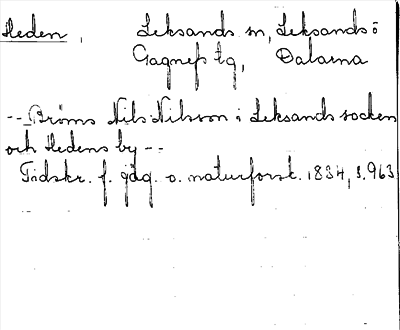 Heden, Leksands sn, Leksands ö
Gagnefs tg, Dalarna
-- Bröms Nils Nilsson i Leksands socken
och Hedens by --
Tidskr. f. jäg. o. naturforsk. 1834, s. 963